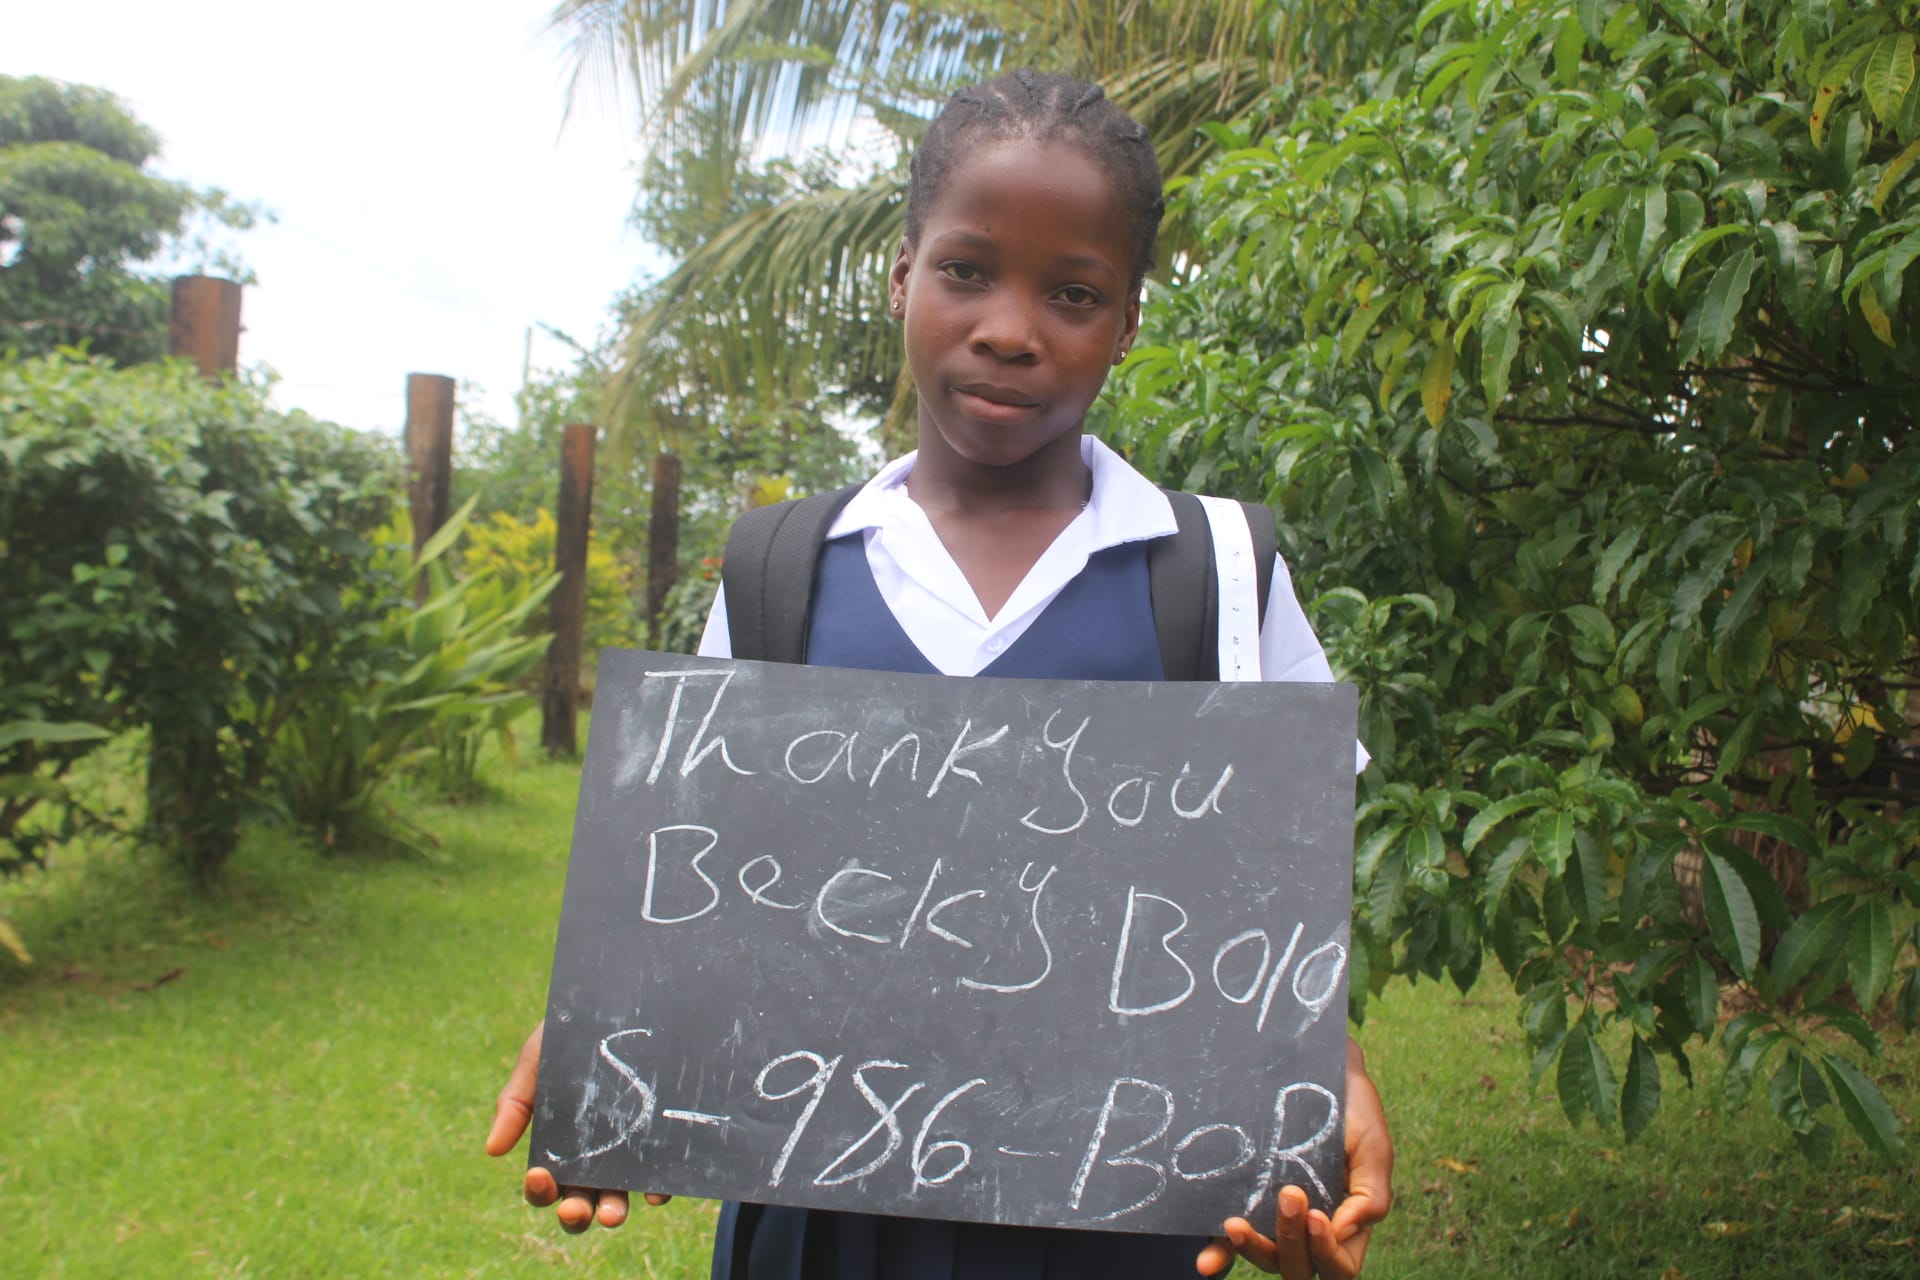 Thank you
Becky Bolo
S-986-BOR